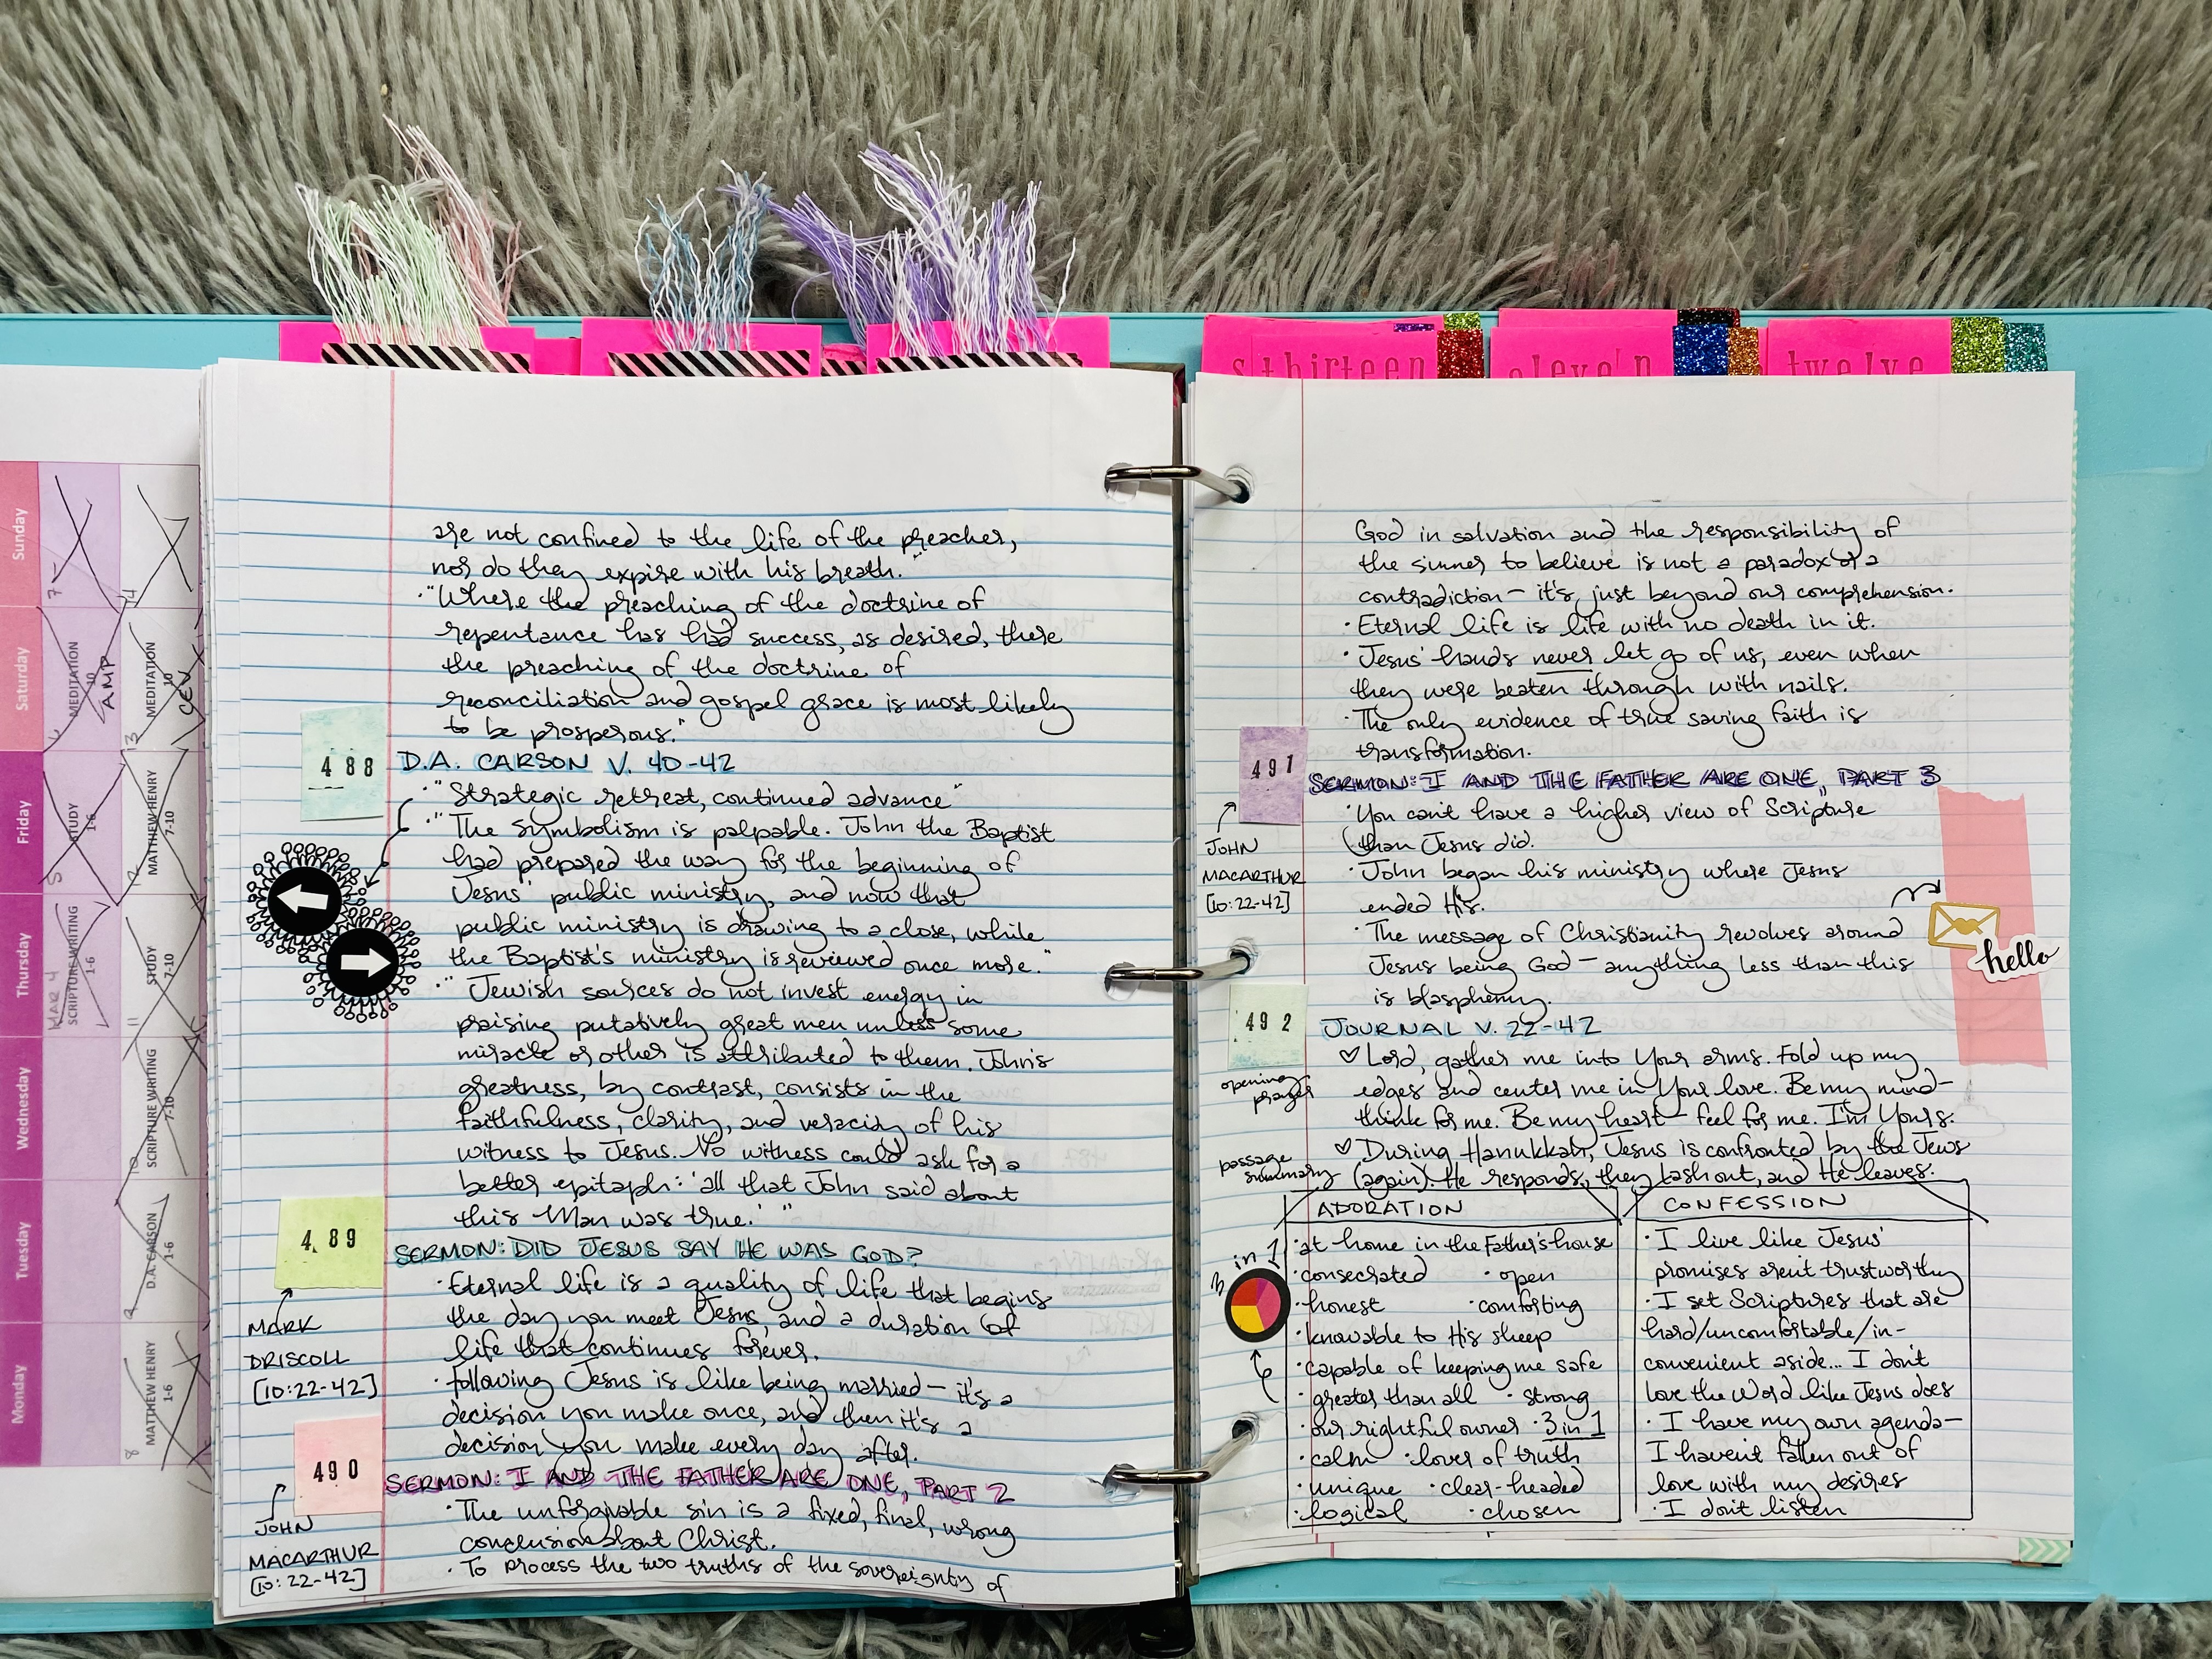 Sunday
7
14
Saturday
6
MEDITATION
10
AMP
13
MEDITATION
10
CEV
Friday
5
STUDY
1-6
12
MATTHEW HENRY
7-10
Thursday
MAR 4
SCRIPTURE WRITING
1-6
11
STUDY
7-10
Wednesday
10
SCRIPTURE WRITING
7-10
Tuesday
9
D.A. CARSON
1-6
Monday
8
MATTHEW HENRY
1-6
are not confined to the life of the preacher,
nor do they expire with his breath."
· "Where the preaching of the doctrine of
repentance has had success, as desired, there
the preaching of the doctrine of
reconciliation and gospel grace is most likely
to be prosperous."
488
D.A. CARSON V. 40-42
· "Strategic retreat, continued advance"
· "The symbolism is palpable. John the Baptist
had prepared the way for the beginning of
Jesus' public ministry, and now that
public ministry is drawing to a close, while
the Baptist's ministry is reviewed once more."
· "Jewish sources do not invest energy in
praising putatively great men unless some
miracle or other is attributed to them. John's
greatness, by contrast, consists in the
faithfulness, clarity, and veracity of his
witness to Jesus. No witness could ask for a
better epitaph: 'all that John said about
this Man was true.' "
489
SERMON: DID JESUS SAY HE WAS GOD?
MARK
DRISCOLL
[10:22-42]
· Eternal life is a quality of life that begins
the day you meet Jesus, and a duration of
life that continues forever.
· Following Jesus is like being married - it's a
decision you make once, and then it's a
decision you make every day after.
490
SERMON: I AND THE FATHER ARE ONE, PART 2
JOHN
MACARTHUR
[10:22-42]
· The unforgivable sin is a fixed, final, wrong
conclusion about Christ.
· To process the two truths of the sovereignty of
s thirteen
eleven
twelve
God in salvation and the responsibility of
the sinner to believe is not a paradox or a
contradiction - it's just beyond our comprehension.
· Eternal life is life with no death in it.
· Jesus' hands never let go of us, even when
they were beaten through with nails.
· The only evidence of true saving faith is
transformation.
491
SERMON: I AND THE FATHER ARE ONE, PART 3
JOHN
MACARTHUR
[10:22-42]
· You can't have a higher view of Scripture
than Jesus did.
· John began his ministry where Jesus
ended His.
· The message of Christianity revolves around
Jesus being God - anything less than this
is blasphemy.
hello
492
JOURNAL V. 22-42
opening
prayer
♡ Lord, gather me into Your arms. Fold up my
edges and center me in Your love. Be my mind-
think for me. Be my heart - feel for me. I'm Yours.
passage
summary
♡ During Hanukkah, Jesus is confronted by the Jews
(again). He responds, they lash out, and He leaves.
ADORATION
3 in 1
· at home in the Father's house
· consecrated · open
· honest · comforting
· knowable to His sheep
· capable of keeping me safe
· greater than all · strong
· our rightful owner · 3 in 1
· calm · lover of truth
· unique · clear-headed
· logical · chosen
CONFESSION
· I live like Jesus'
promises aren't trustworthy
· I set Scriptures that are
hard/uncomfortable/in-
convenient aside... I don't
love the Word like Jesus does
· I have my own agenda-
I haven't fallen out of
love with my desires
· I don't listen